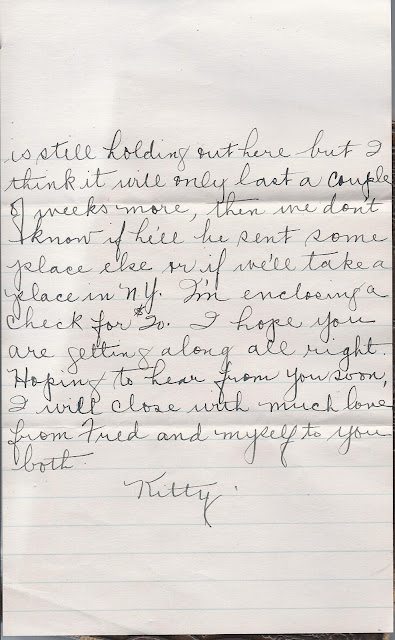 is still holding out here but I
think it will only last a couple
of weeks more, then we don't
know if he'll be sent some
place else or if we'll take a
place in N.Y. I'm enclosing a
check for $20. I hope you
are getting along all right.
Hoping to hear from you soon,
I will close with much love
from Fred and myself to you
both.
Kitty.